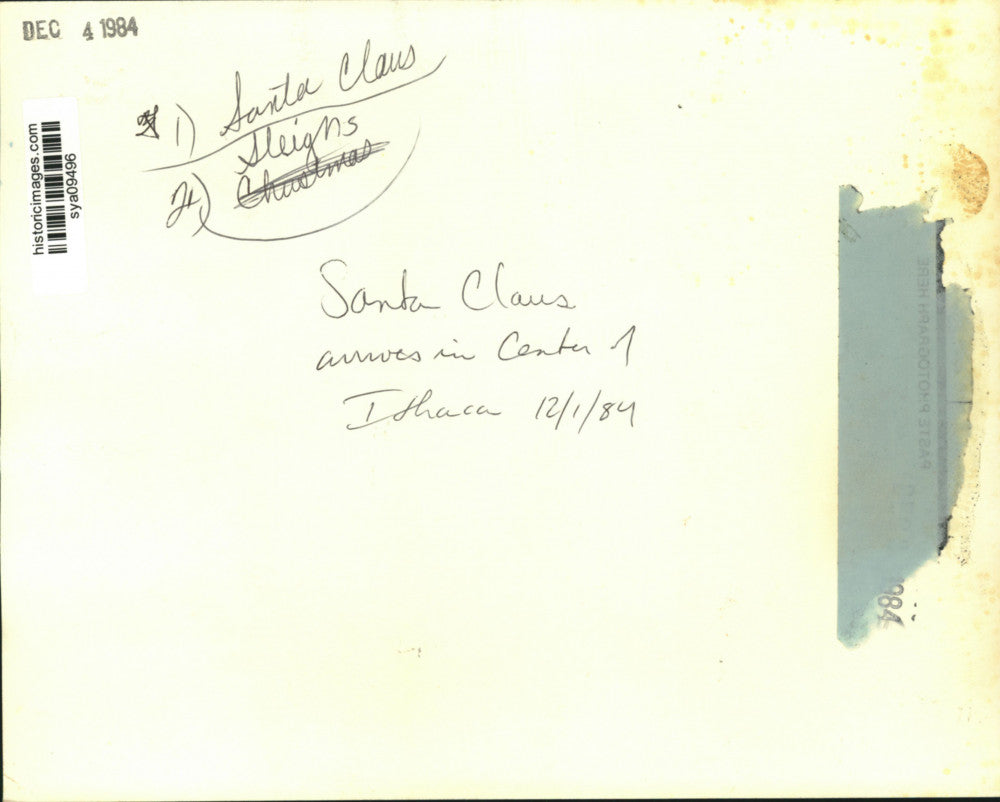 DEC 4 1984
historicimages.com
sya09496
1) Santa Claus
Sleighs
2) Christmas
Santa Claus
arrives in Center of
Ithaca 12/1/84
PASTE PHOTOGRAPH HERE
984